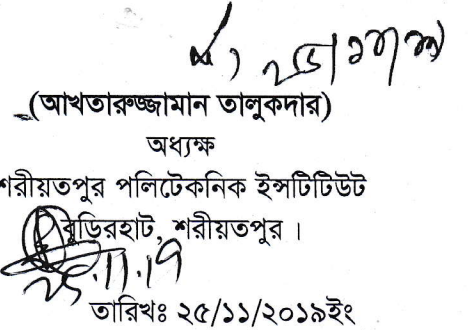 (আখতারুজ্জামান তালুকদার)
অধ্যক্ষ
শরীয়তপুর পলিটেকনিক ইন্সটিটিউট
বুড়িরহাট, শরীয়তপুর ।
25.11.19
তারিখঃ ২৫/১১/২০১৯ইং